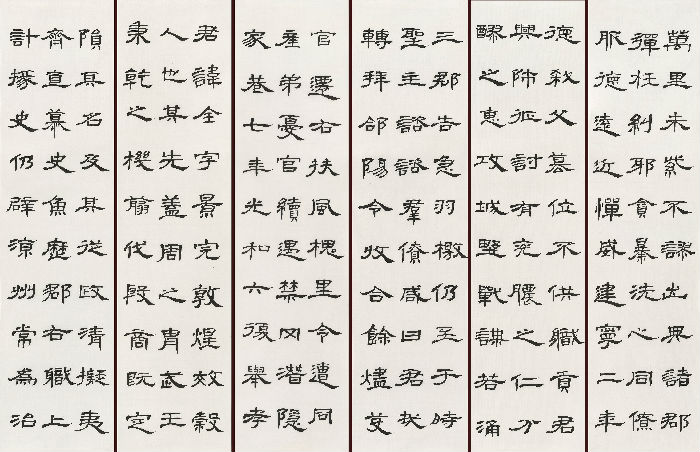 萬里朱紫不謬出典諸郡
彈枉糾邪貪暴洗心同僚
服德遠近憚威建寧二年
德弒父篡位不供職貢君
興師征討有兗膿之仁分
醪之惠攻城野戰謀若涌
三郡告急羽檄仍至于時
聖主諮諏羣僚咸曰君哉
轉拜郃陽令收合餘燼芟
官遷右扶風槐里令遭同
產弟憂官續遇禁网潛隱
家巷七年光和六復舉孝
君諱全字景完敦煌效穀
人也其先蓋周之胄武王
秉乾之機翦伐殷商既定
隕其名及其從政清擬夷
齊直慕史魚歷郡右職上
計掾史仍辟涼州常為治